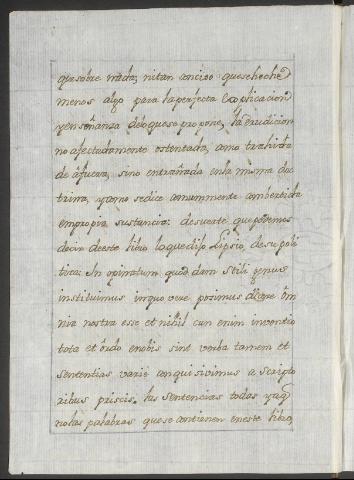 que sobre nada; ni tan conciso que se heche
menos algo para la perfecta Explicacion
y enseñanza de lo que se propone, la erudicion
no afectadamente ostentada, como trahida
de afuera, sino entrañada en la misma doc
trina, y como se dice comunmente embebida
en propia sustancia: de suerte que podemos
decir de este libro lo que dijo Lipsio, de su poli
tica: In opinatum quod dam stili genus
instituimus in quo vere posimus dicere óm
nia nostra esse et nihil cun enim inventio
tota et órdo enobis sint verba tamem et
sententias varie conquisivimus a scripto
ribus priscis. las sentencias todas y aq̃
nolas palabras que se contienen en este libro,